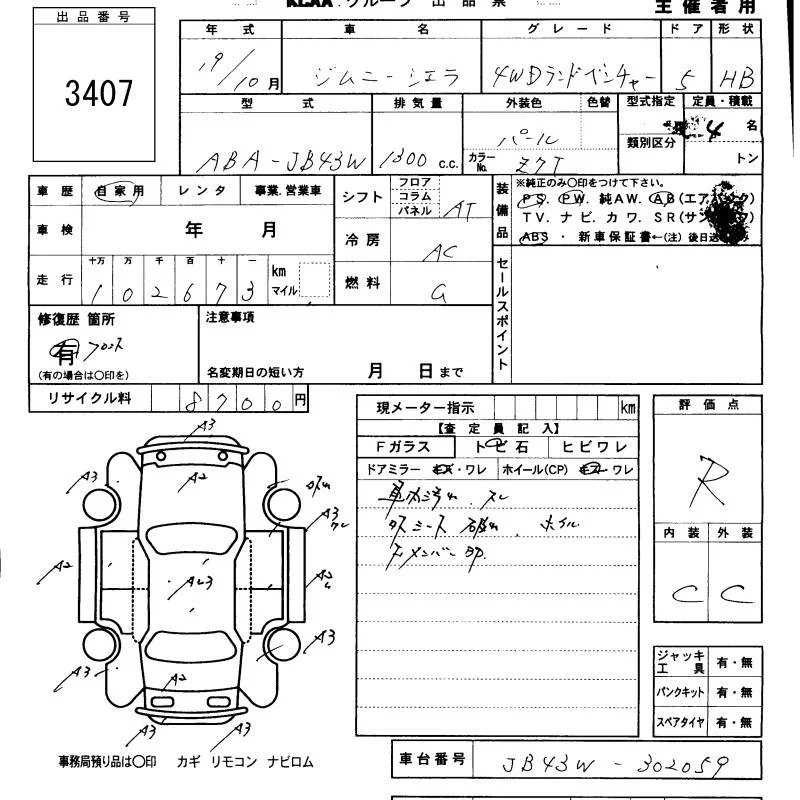 KCAA.グループ 出品票
主催者用
出品番号
3407
年式 車名 グレード ドア 形状
19/10月 ジムニーシエラ 4WDランドベンチャー 5 HB
型式 排気量 外装色 色替 型式指定 定員・積載
ABA-JB43W 1300 c.c. パール カラーNo. Z7T 類別区分 4名
トン
車歴 自家用 レンタ 事業.営業車
車検 年 月
走行 十万 万 千 百 十 一 km マイル
1 0 2 6 7 3
シフト フロア コラム パネル AT
冷房 AC
燃料 G
装備品
※純正のみ〇印をつけて下さい。
PS. PW. 純AW. AB(エアバック)
TV. ナビ. カワ. SR(サンルーフ)
ABS ・ 新車保証書←(注) 後日送付のみ
セールスポイント
修復歴 箇所
有 フロント
(有の場合は〇印を)
注意事項
名変期日の短い方 月 日まで
リサイクル料 8700円
現メーター指示 km
【査定員記入】
Fガラス トビ石 ヒビワレ
ドアミラー キズ・ワレ ホイール(CP) キズ・ワレ
車内汚れ. スレ
ホイル
評価点
R
内装 外装
C C
A3
A3 A2 A3
A2 A2
A3 A3
A3 A2
A3 A3
ジャッキ工具 有・無
パンクキット 有・無
スペアタイヤ 有・無
事務局預り品は〇印 カギ リモコン ナビロム
車台番号 JB43W-302059